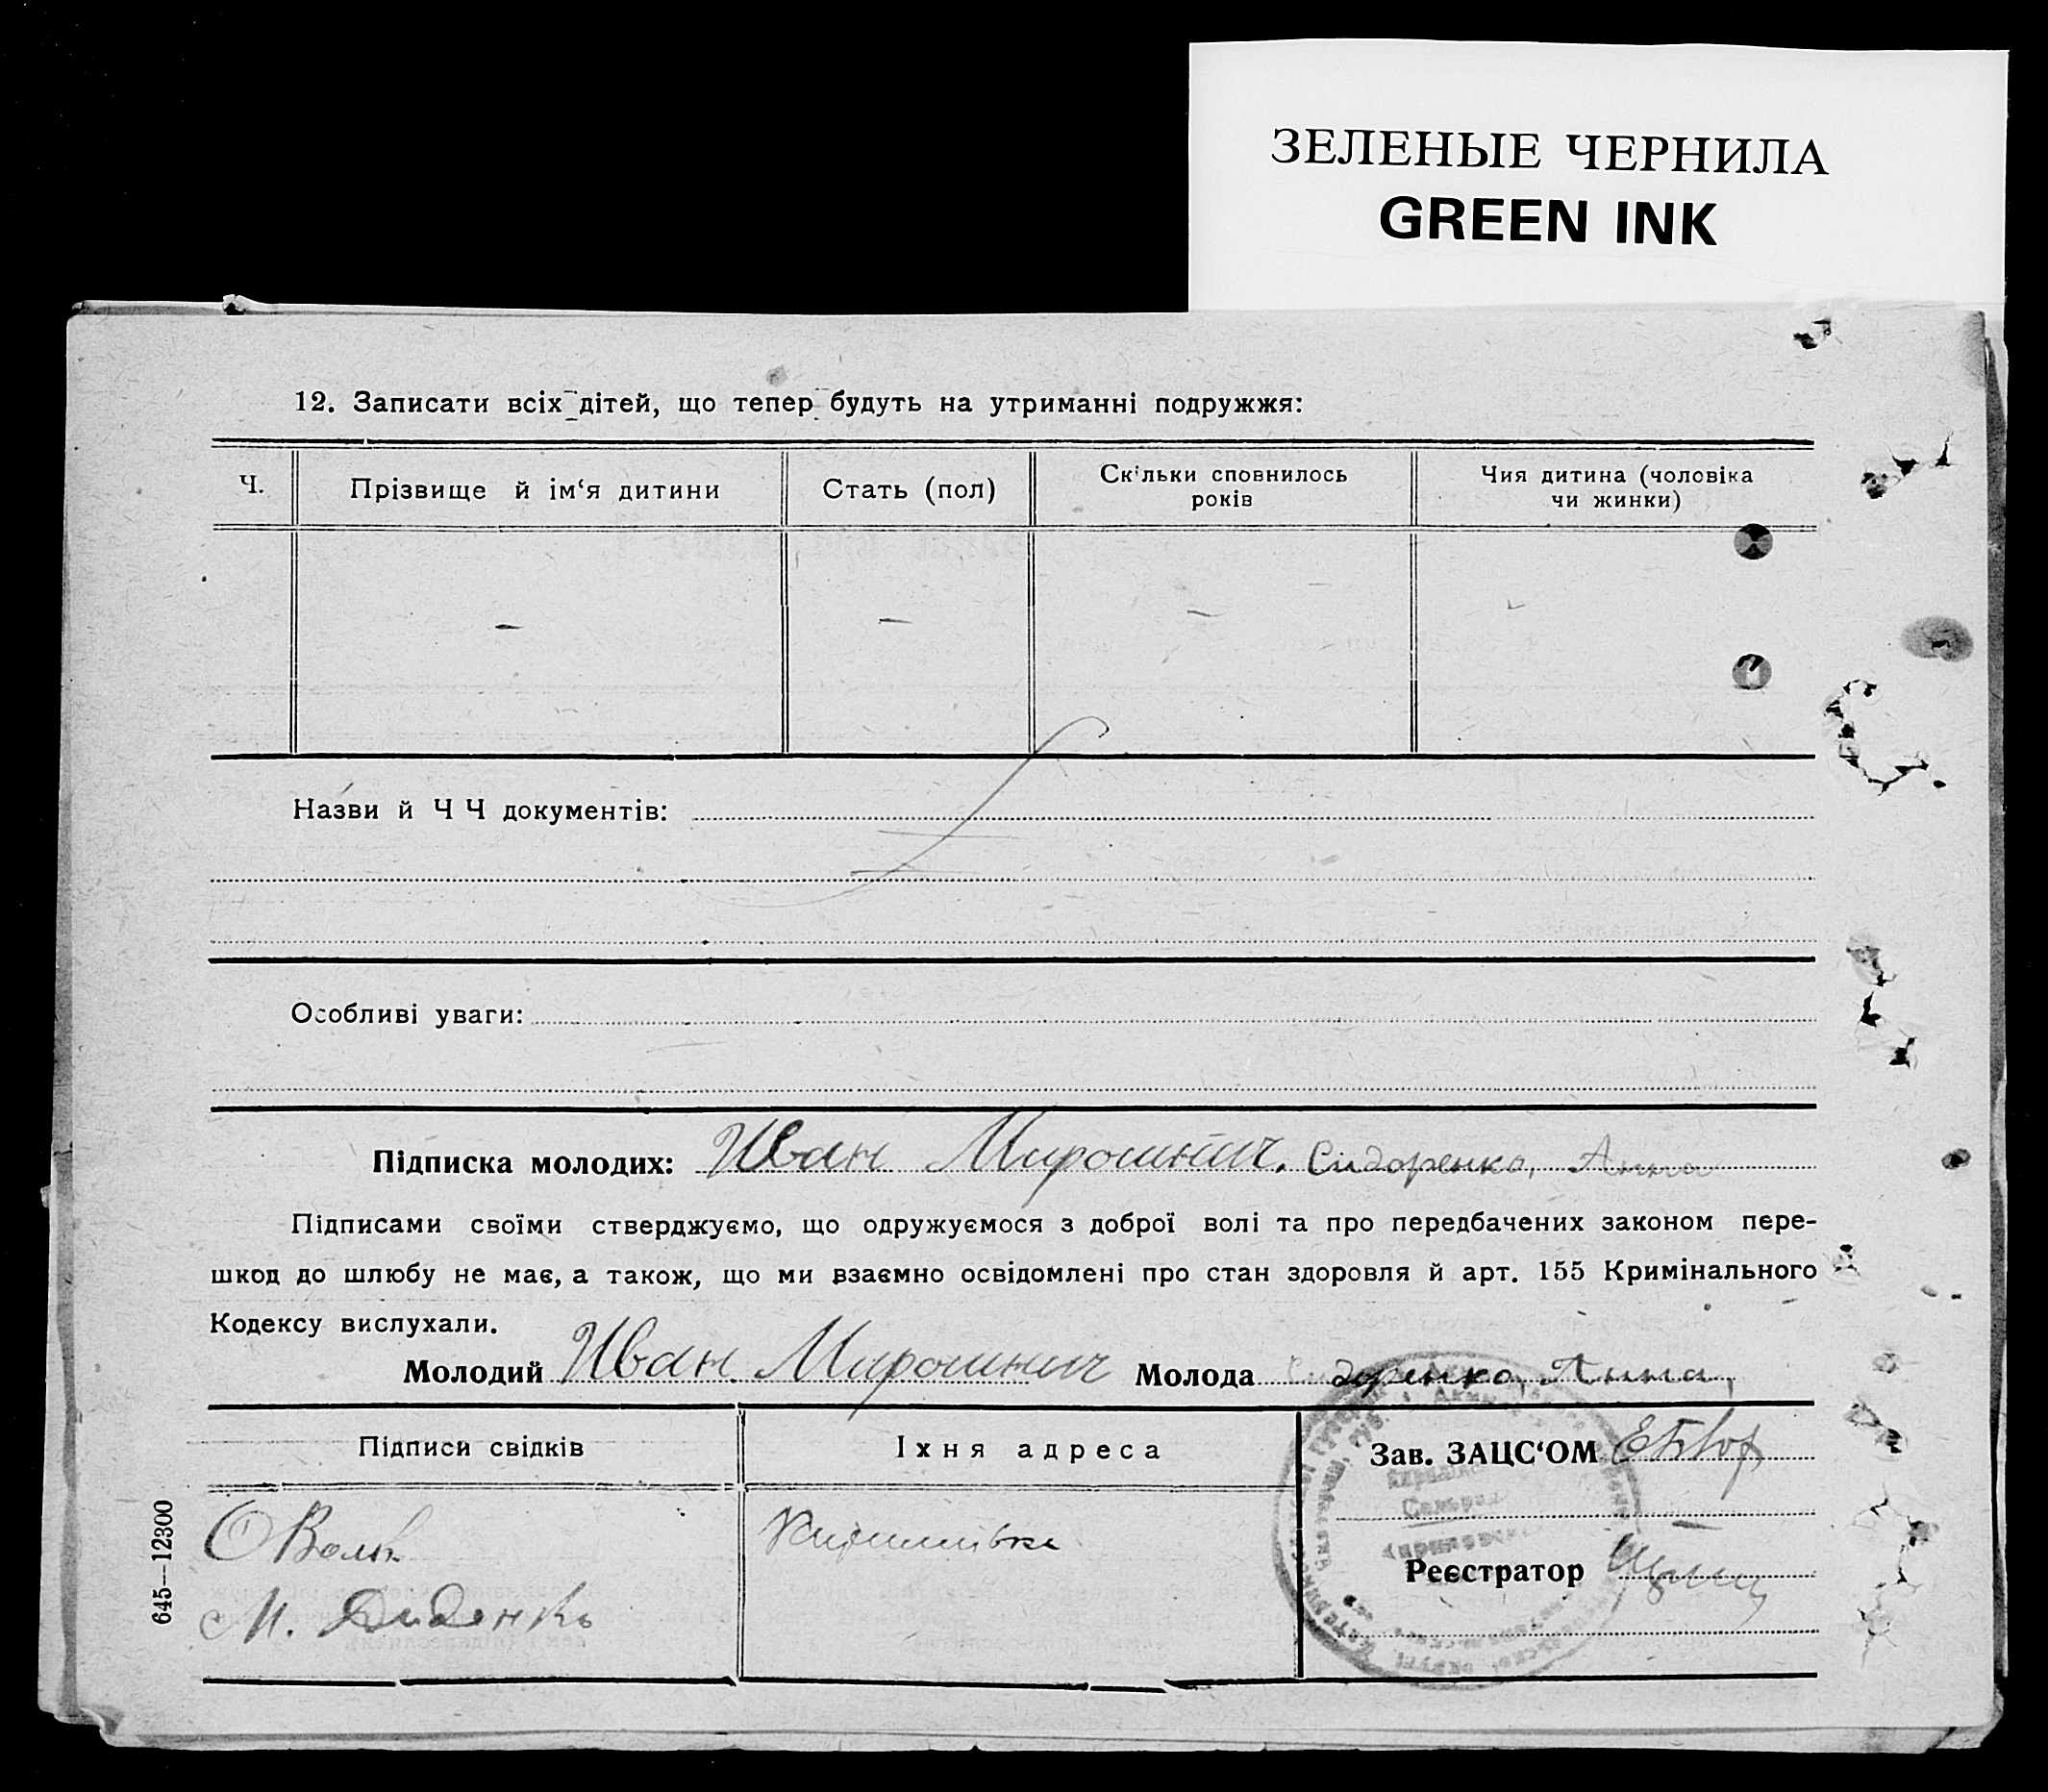 ЗЕЛЕНЫЕ ЧЕРНИЛА
GREEN INK
12. Записати всіх дітей, що тепер будуть на утриманні подружжя:
Ч.
Прізвище й ім‘я дитини
Стать (пол)
Скільки сповнилось
років
Чия дитина (чоловіка
чи жинки)
Назви й Ч Ч документів:
Особливі уваги:
Підписка молодих: Иван Мирошнич. Сидоренко, Анна
Підписами своїми стверджуємо, що одружуємося з доброї волі та про передбачених законом пере-
шкод до шлюбу не має, а також, що ми взаємно освідомлені про стан здоровля й арт. 155 Кримінального
Кодексу вислухали.
Молодий Иван Мирошнич Молода Сидоренко, Анна,
Підписи свідків
Їхня адреса
Зав. ЗАЦС‘ОМ
М. Диденко
Реєстратор
645—12300